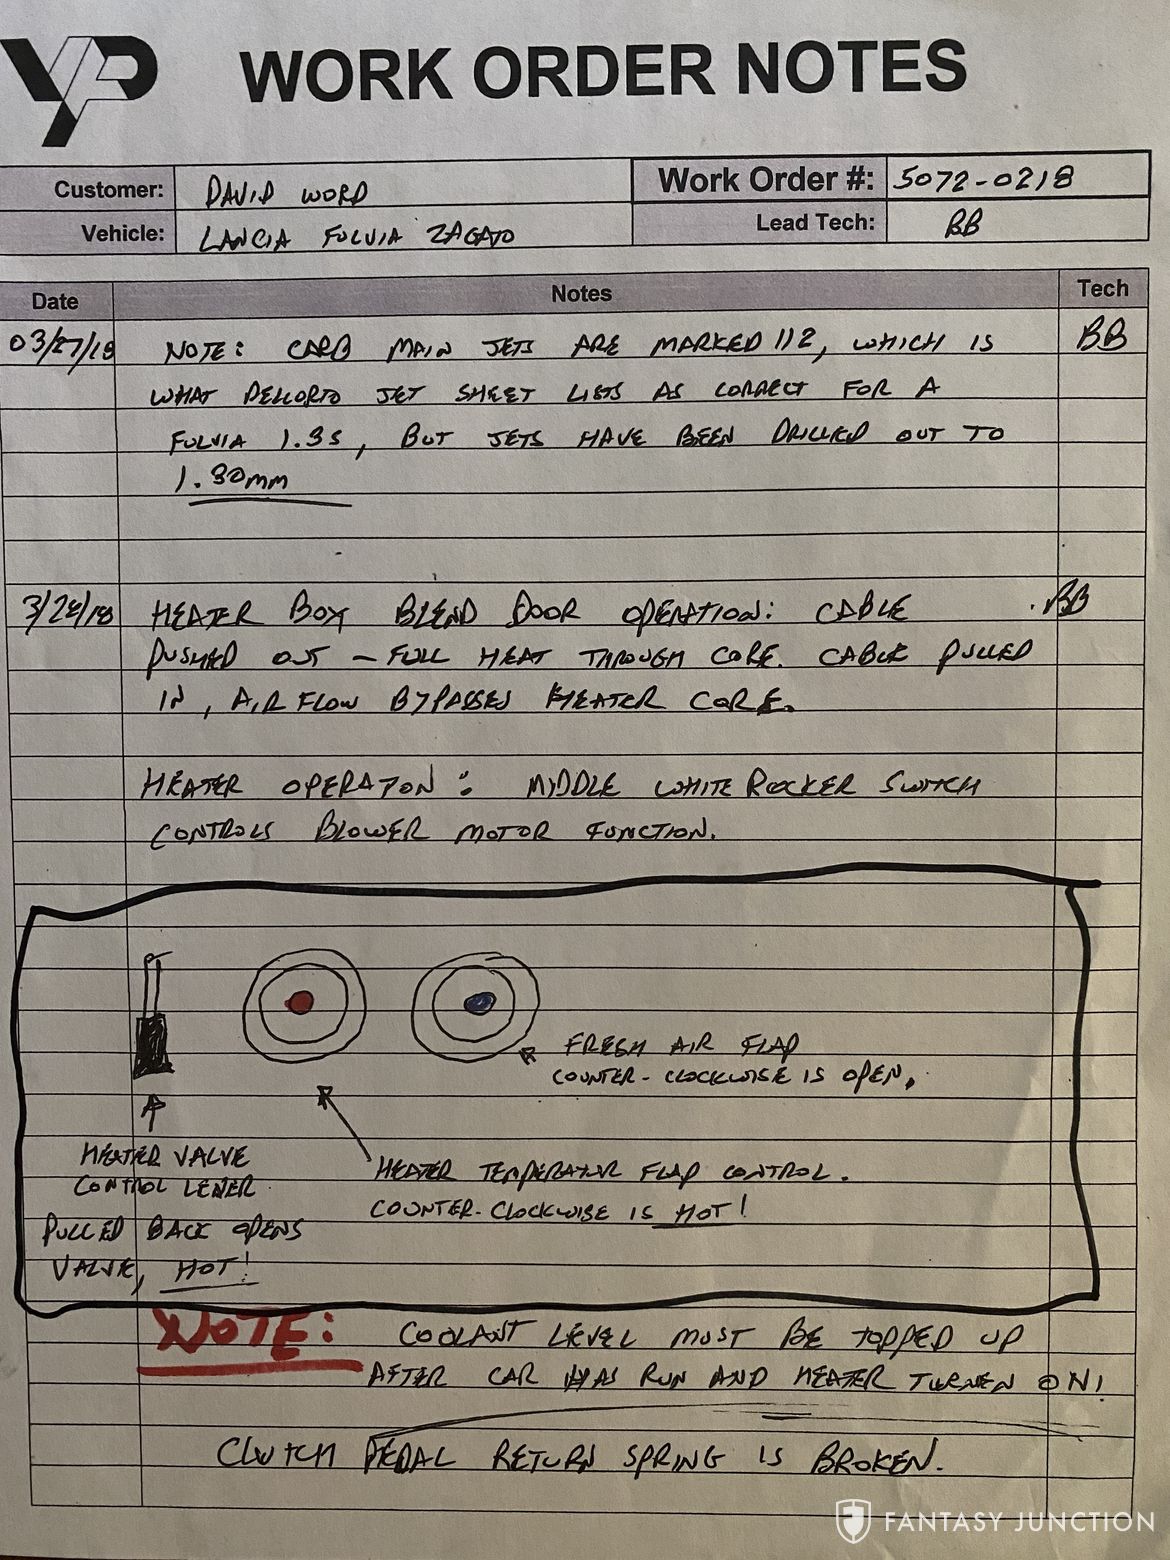 YP
WORK ORDER NOTES
Customer: DAVID WORD
Work Order #: 5072-0218
Vehicle: LANCIA FULVIA ZAGATO
Lead Tech: BB
Date Notes Tech
03/27/18 NOTE: CARB MAIN JETS ARE MARKED 112, WHICH IS BB
WHAT DELLORTO JET SHEET LISTS AS CORRECT FOR A
FULVIA 1.3S, BUT JETS HAVE BEEN DRILLED OUT TO
1.30mm
3/28/18 HEATER BOX BLEND DOOR OPERATION: CABLE BB
PUSHED OUT - FULL HEAT THROUGH CORE. CABLE PULLED
IN, AIR FLOW BYPASSES HEATER CORE.
HEATER OPERATON: MIDDLE WHITE ROCKER SWITCH
CONTROLS BLOWER MOTOR FUNCTION.
FRESH AIR FLAP
COUNTER-CLOCKWISE IS OPEN.
HEATER VALVE
CONTROL LEVER
PULLED BACK OPENS
VALVE, HOT!
HEATER TEMPERATUR FLAP CONTROL.
COUNTER-CLOCKWISE IS HOT!
NOTE: COOLANT LEVEL MUST BE TOPPED UP
AFTER CAR HAS RUN AND HEATER TURNEN ON!
CLUTCH PEDAL RETURN SPRING IS BROKEN.
FANTASY JUNCTION